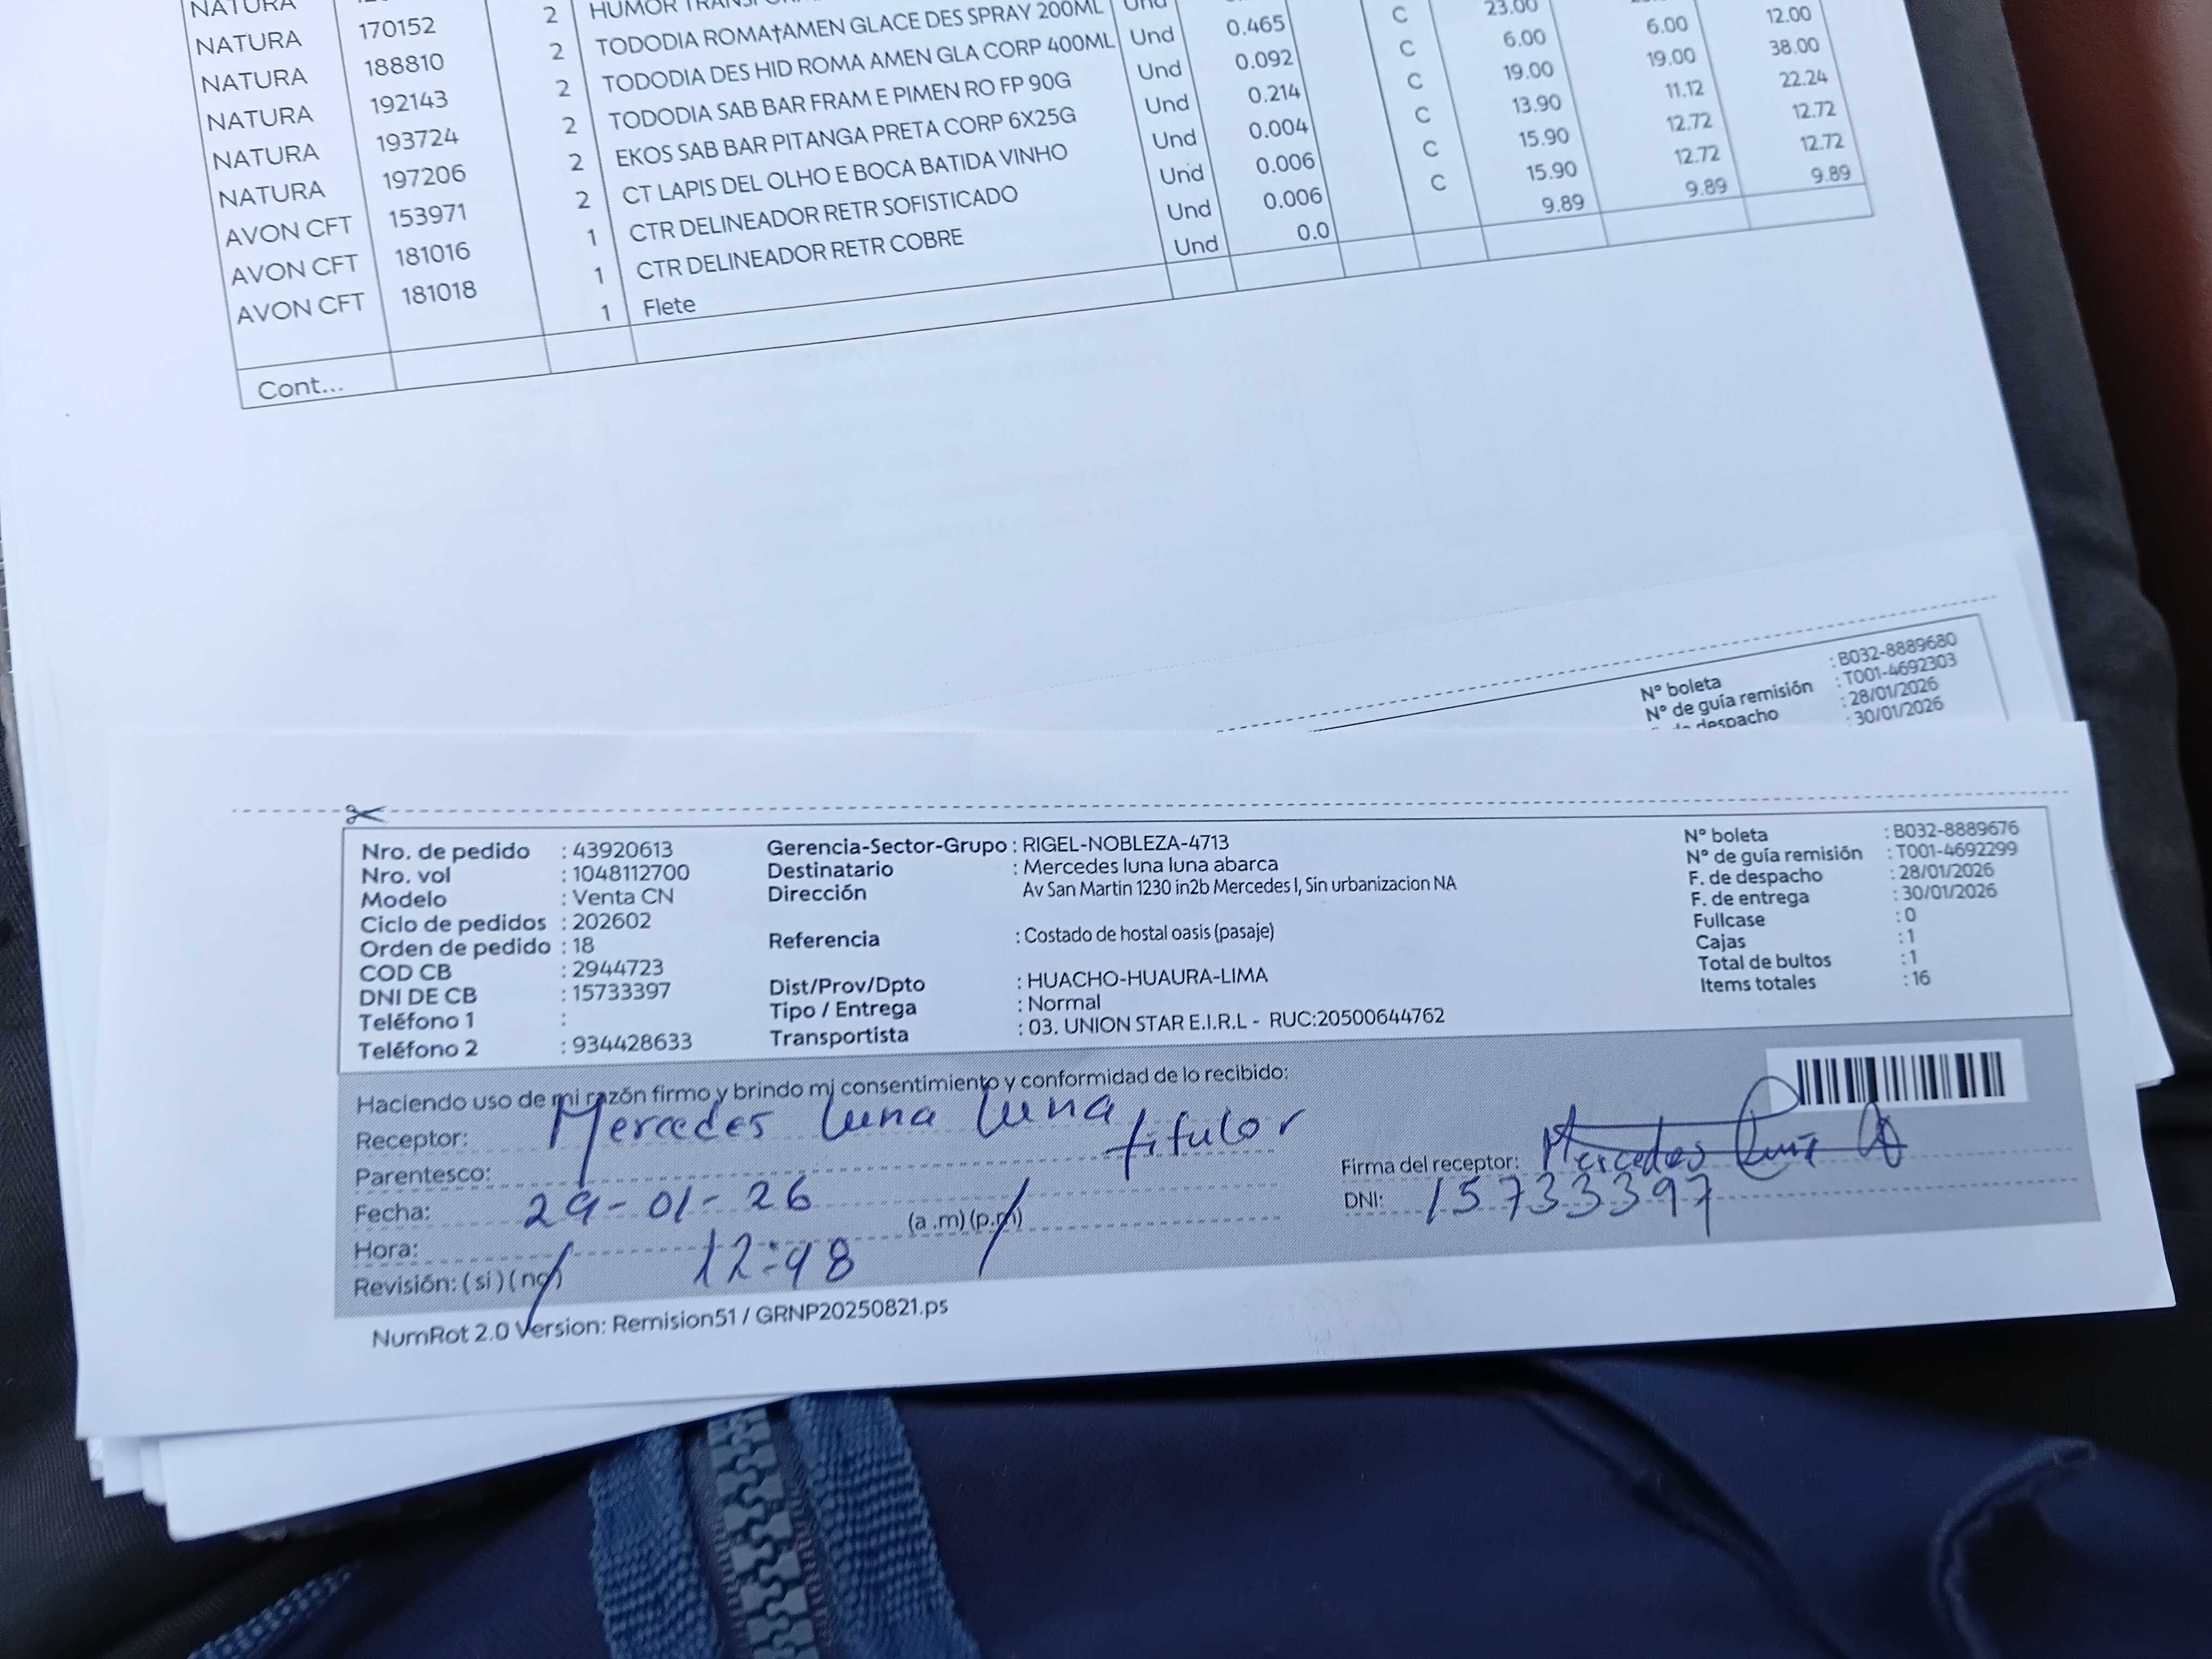 NATURA
NATURA 170152 2 HUMOR
NATURA 188810 2 TODODIA ROMA†AMEN GLACE DES SPRAY 200ML Und 0.465 C 23.00
NATURA 192143 2 TODODIA DES HID ROMA AMEN GLA CORP 400ML Und 0.092 C 6.00 6.00 12.00
NATURA 193724 2 TODODIA SAB BAR FRAM E PIMEN RO FP 90G Und 0.214 C 19.00 19.00 38.00
NATURA 197206 2 EKOS SAB BAR PITANGA PRETA CORP 6X25G Und 0.004 C 13.90 11.12 22.24
AVON CFT 153971 2 CT LAPIS DEL OLHO E BOCA BATIDA VINHO Und 0.006 C 15.90 12.72 12.72
AVON CFT 181016 1 CTR DELINEADOR RETR SOFISTICADO Und 0.006 C 15.90 12.72 12.72
AVON CFT 181018 1 CTR DELINEADOR RETR COBRE Und 0.0 9.89 9.89 9.89
1 Flete
Cont...
N° boleta : B032-8889680
N° de guía remisión : T001-4692303
despacho : 28/01/2026
: 30/01/2026
Nro. de pedido : 43920613 Gerencia-Sector-Grupo : RIGEL-NOBLEZA-4713 N° boleta : B032-8889676
Nro. vol : 1048112700 Destinatario : Mercedes luna luna abarca N° de guía remisión : T001-4692299
Modelo : Venta CN Dirección Av San Martin 1230 in2b Mercedes I, Sin urbanizacion NA F. de despacho : 28/01/2026
Ciclo de pedidos : 202602 F. de entrega : 30/01/2026
Orden de pedido : 18 Referencia : Costado de hostal oasis (pasaje) Fullcase : 0
COD CB : 2944723 Cajas : 1
DNI DE CB : 15733397 Dist/Prov/Dpto : HUACHO-HUAURA-LIMA Total de bultos : 1
Teléfono 1 : Tipo / Entrega : Normal Items totales : 16
Teléfono 2 : 934428633 Transportista : 03. UNION STAR E.I.R.L - RUC:20500644762
Haciendo uso de mi razón firmo y brindo mi consentimiento y conformidad de lo recibido:
Receptor: Mercedes luna luna
Parentesco: titular Firma del receptor: Mercedes Luna A
Fecha: 29-01-26 (a .m) (p.m) DNI: 15733397
Hora: 12:48
Revisión: ( si ) ( no )
NumRot 2.0 Version: Remision51 / GRNP20250821.ps